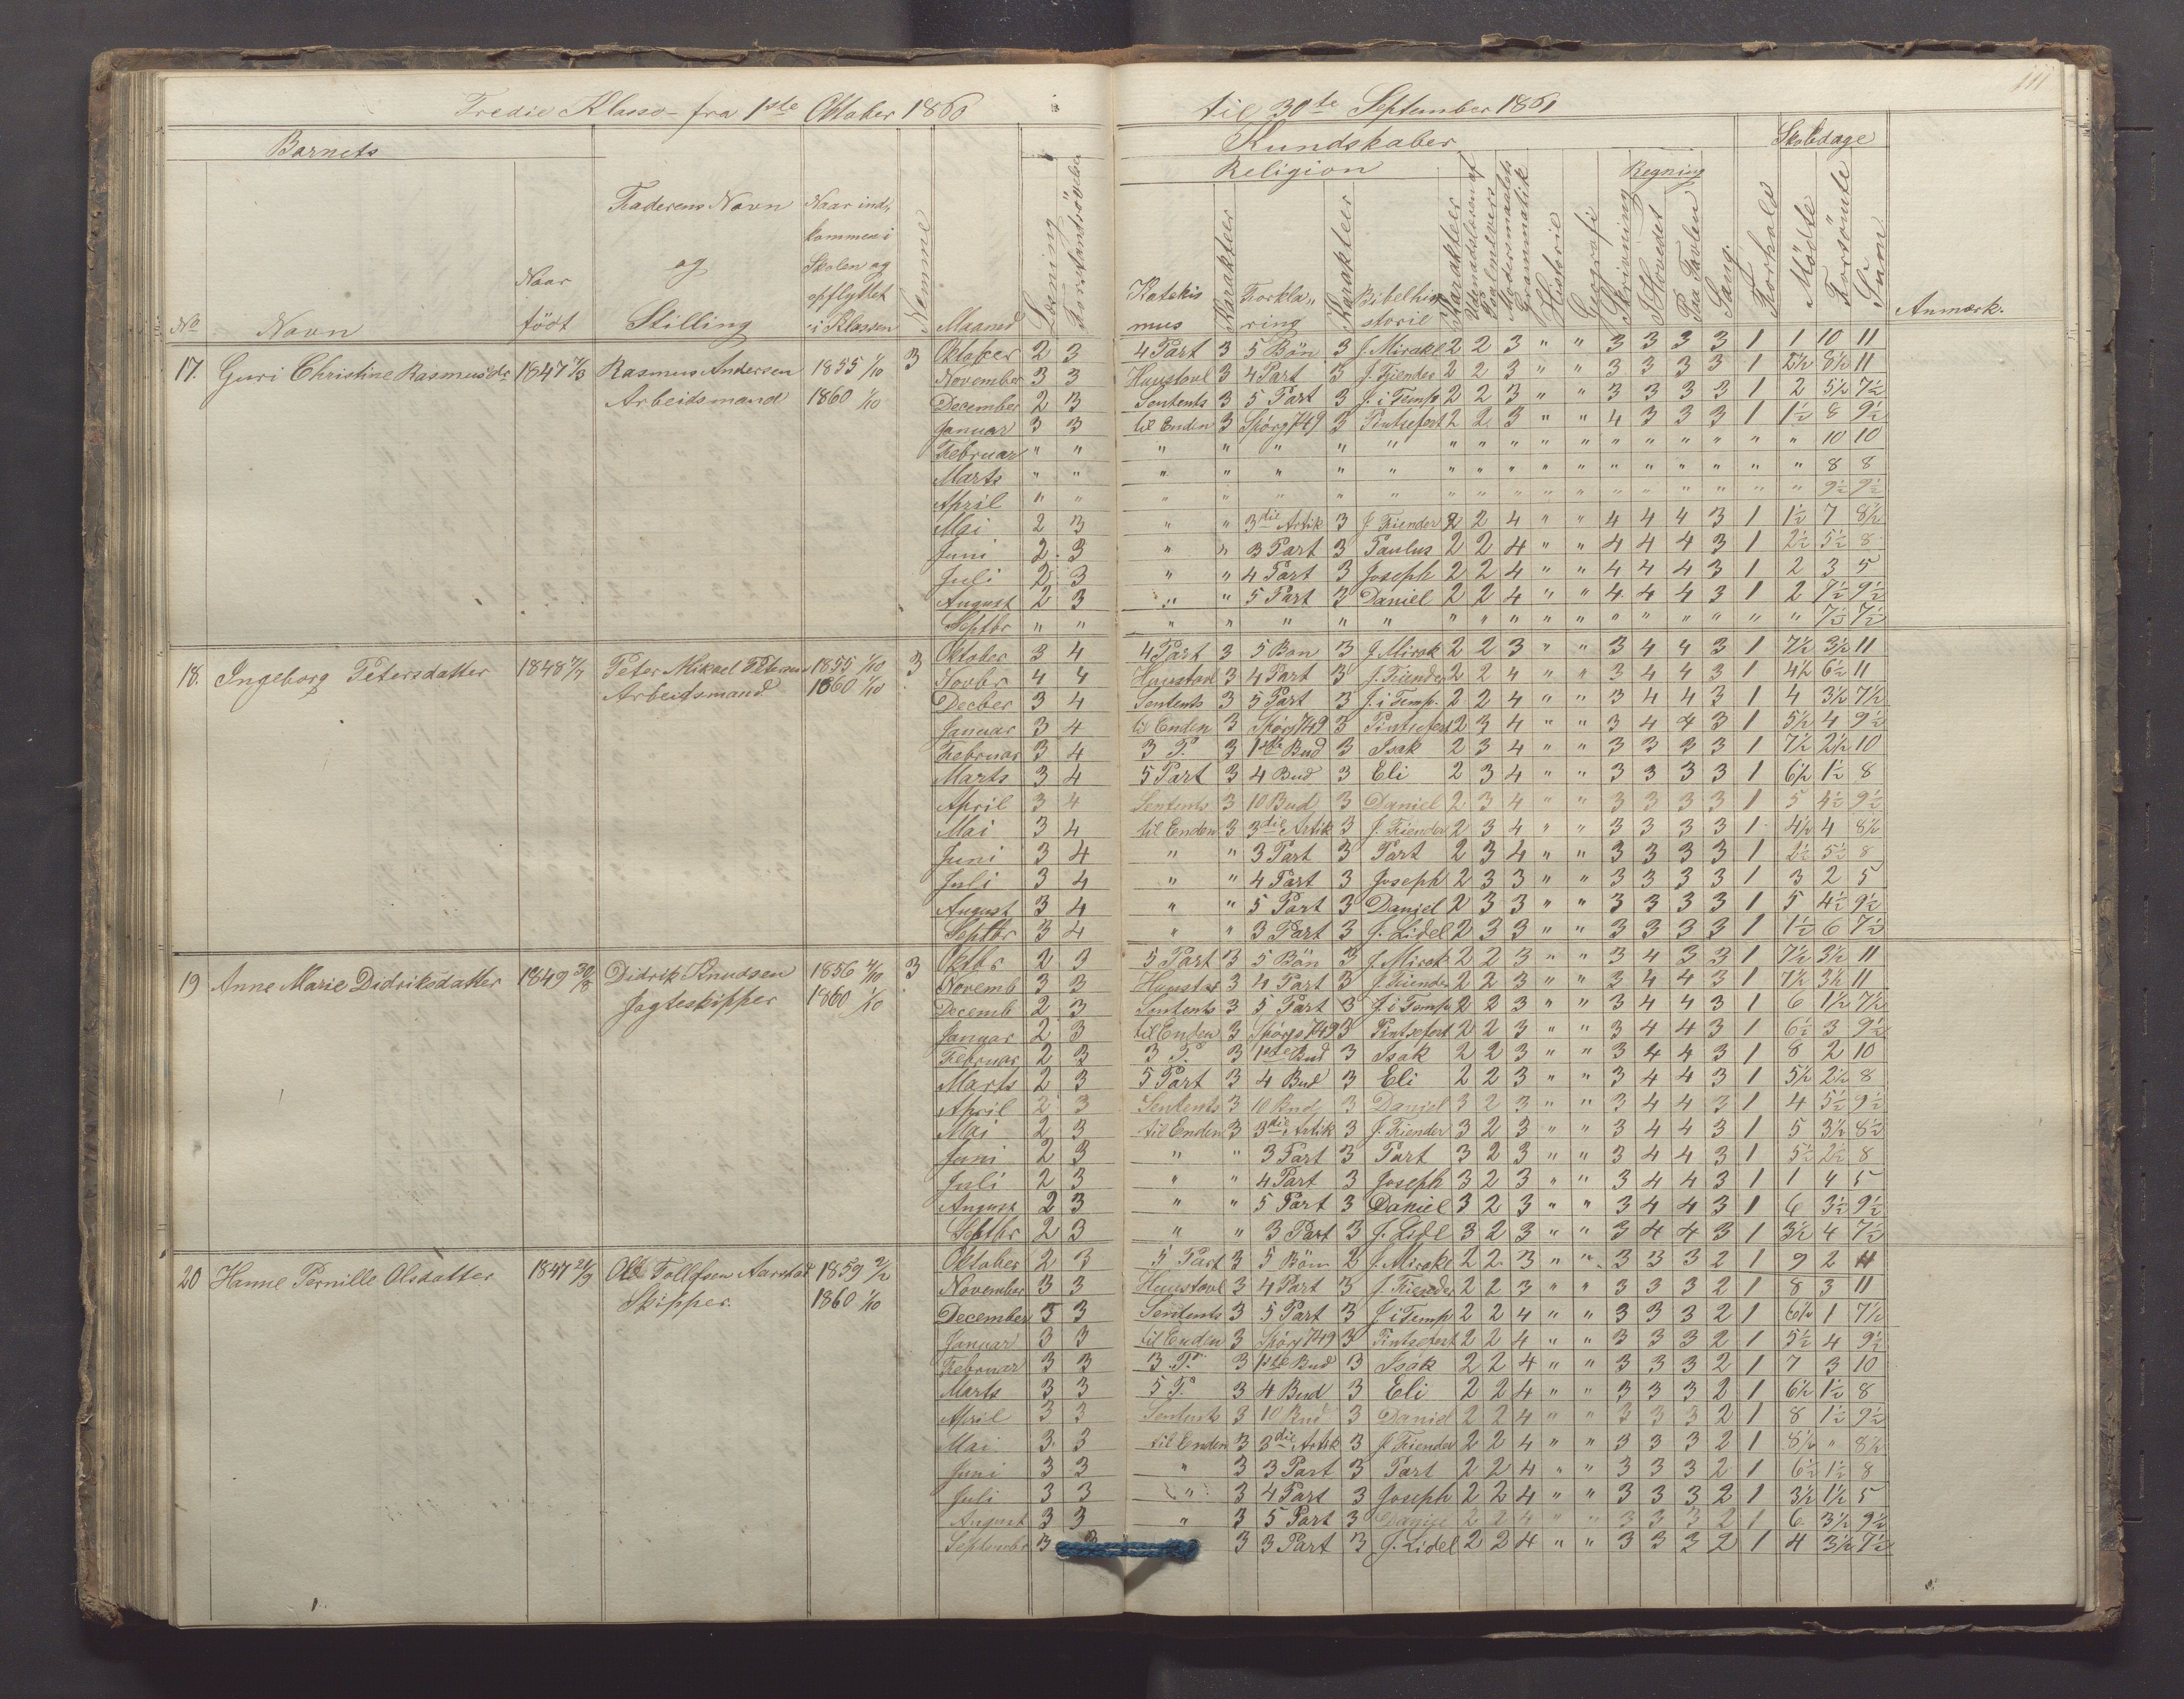 111
Tredie Klasse fra 1ste Oktober 1860 til 30te September 1861
Barnets
No
Navn
Naar født
Faderens Navn og Stilling
Naar indkommen i Skolen og opflyttet i Klassen
Nemme
Maaned
Læsning
Forstandsøvelse
Kundskaber
Religion
Katekismus
Karakteer
Forklaring
Karakteer
Bibelhistorie
Karakteer
Udenadslæsen af Psalmevers
Modersmaalets Grammatik
Historie
Geografi
Skrivning
Regning
I Hovedet
Paa Tavlen
Sang
Forhold
Skoledage
Mødte
Forsömte
Sum
Anmærk.
17. Guri Christine Rasmusdr 1847 Rasmus Andersen Arbeidsmand 1855 1/10 1860 1/10 3
Oktober 2 3 4 Part 3 5 Bön 3 J. Mirakl 2 2 3 " " 3 3 3 3 1 1 10 11
November 3 3 Huustavl 3 4 Part 3 J. Fiender 2 2 3 " " 3 3 3 3 1 2½ 8½ 11
December 2 3 Sentents 3 5 Part 3 J. i Temp 2 2 3 " " 3 3 3 3 1 2 5½ 7½
Januar 3 3 til Enden 3 Spörg 749 3 Pintsefest 2 2 3 " " 4 3 3 3 1 1½ 8 9½
Februar " " " " " " " " " " " " " " " " " " 10 10
Marts " " " " " " " " " " " " " " " " " " 8 8
April " " " " " " " " " " " " " " " " " " 9½ 9½
Mai 2 3 " " 3die Artik 3 J. Fiender 2 2 4 " " 4 4 4 3 1 1½ 7 8½
Juni 2 3 " " 3 Part 3 Paulus 2 2 4 " " 4 4 4 3 1 2½ 5½ 8
Juli 2 3 " " 4 Part 3 Joseph 2 2 4 " " 4 4 4 3 1 2 3 5
August 2 3 " " 5 Part 3 Daniel 2 2 4 " " 4 4 4 3 1 2 7½ 9½
Septbr " " " " " " " " " " " " " " " " " " 7½ 7½
18. Ingeborg Petersdatter 1848 Peter Mikael Petersen Arbeidsmand 1855 1/10 1860 1/10 3
Oktober 3 4 4 Part 3 5 Bon 3 J. Mirak 2 2 3 " " 3 4 4 3 1 7½ 3½ 11
Novbr 4 4 Huustavl 3 4 Part 3 J. Fiender 2 2 4 " " 3 4 4 3 1 4½ 6½ 11
Decber 3 4 Sentents 3 5 Part 3 J. i Temp. 2 2 4 " " 3 4 4 3 1 4 3½ 7½
Januar 3 4 til Enden 3 Spörg 749 3 Pintsefest 2 3 4 " " 3 4 4 3 1 5½ 4 9½
Februar 3 4 3 P. 3 1ste Bud 3 Isak 2 3 4 " " 3 3 3 3 1 7½ 2½ 10
Marts 3 4 5 Part 3 4 Bud 3 Eli 2 3 4 " " 3 3 3 3 1 6½ 1½ 8
April 3 4 Sentents 3 10 Bud 3 Daniel 2 3 4 " " 3 3 3 3 1 5 4½ 9½
Mai 3 4 til Enden 3 3die Artik 3 J. Fiender 2 3 4 " " 3 3 3 3 1 4½ 4 8½
Juni 3 4 " " 3 Part 3 Part 2 3 4 " " 3 3 3 3 1 2½ 5½ 8
Juli 3 4 " " 4 Part 3 Joseph 2 3 3 " " 3 3 3 3 1 3 2 5
August 3 4 " " 5 Part 3 Daniel 2 3 3 " " 3 3 3 3 1 5 4½ 9½
Septbr 3 4 " " 3 Part 3 J. Lidel 2 3 3 " " 3 3 3 3 1 1½ 6 7½
19 Anne Marie Didriksdatter 1849 30/8 Didrik Knudsen Jagteskipper 1856 1860 1/10 3
Oktbr 2 3 5 Part 3 5 Bön 3 J. Mirak 2 2 3 " " 3 4 3 3 1 7½ 3½ 11
Novemb 3 3 Huustav 3 4 Part 3 J. Fiender 2 2 3 " " 3 4 4 3 1 7½ 3½ 11
Decemb 2 3 Sentents 3 5 Part 3 J. i Temp 2 2 3 " " 3 4 4 3 1 6 1½ 7½
Januar 2 3 til Enden 3 Spörgs 749 3 Pintsefest 2 2 3 " " 3 4 4 3 1 6½ 3 9½
Februar 2 3 3 P. 3 1ste Bud 3 Isak 2 2 3 " " 3 4 4 3 1 8 2 10
Marts 2 3 5 Part 3 4 Bud 3 Eli 2 2 3 " " 3 4 4 3 1 5½ 2½ 8
April 2 3 Sentents 3 10 Bud 3 Daniel 3 2 3 " " 3 4 4 3 1 4 5½ 9½
Mai 2 3 til Enden 3 3die Artik 3 J. Fiender 3 2 3 " " 3 4 4 3 1 5 3½ 8½
Juni 2 3 " " 3 Part 3 Part 3 2 3 " " 3 4 4 3 1 5½ 2½ 8
Juli 2 3 " " 4 Part 3 Joseph 3 2 3 " " 3 4 4 3 1 1 4 5
August 2 3 " " 5 Part 3 Daniel 3 2 3 " " 3 4 4 3 1 6 3½ 9½
Septbr 2 3 " " 3 Part 3 J. Lidl 3 2 3 " " 3 4 4 3 1 3½ 4 7½
20 Hanne Pernille Olsdatter 1847 21/9 Tollefsen Aarstad Skipper. 1859 2/2 1860 1/10
Oktober 2 3 5 Part 3 5 Bön 2 J. Mirakl 2 2 3 " " 3 3 3 2 1 9 2 11
November 3 3 Huustavl 3 4 Part 3 J. Fiender 2 2 3 " " 3 3 3 2 1 8 3 11
December 3 3 Sentents 3 5 Part 3 J i Temp 2 2 4 " " 3 3 3 2 1 6½ 1 7½
Januar 3 3 til Enden 3 Spörg 749 3 Pintsefest 2 2 4 " " 3 3 3 2 1 5½ 4 9½
Februar 3 3 3 P. 3 1ste Bud 3 Isak 2 2 4 " " 3 3 3 2 1 7 3 10
Marts 3 3 5 P. 3 4 Bud 3 Eli 2 2 4 " " 3 3 3 2 1 6½ 1½ 8
April 3 3 Sentents 3 10 Bud 3 Daniel 2 2 4 " " 3 3 3 2 1 8 1½ 9½
Mai 3 3 til Enden 3 3die Artik 3 J. Fiender 2 2 4 " " 3 3 3 2 1 8½ " 8½
Juni 3 3 " 3 3 Part 3 Part 2 2 4 " " 3 3 3 2 1 6½ 1½ 8
Juli 3 3 " 3 4 Part 3 Joseph 2 2 4 " " 3 3 3 2 1 3½ 1½ 5
August 3 3 " 3 5 Part 3 Daniel 2 2 4 " " 3 3 3 2 1 6 3½ 9½
September 3 3 3 3 Part 3 J. Lidel 2 2 4 " " 3 3 3 2 1 4 3½ 7½